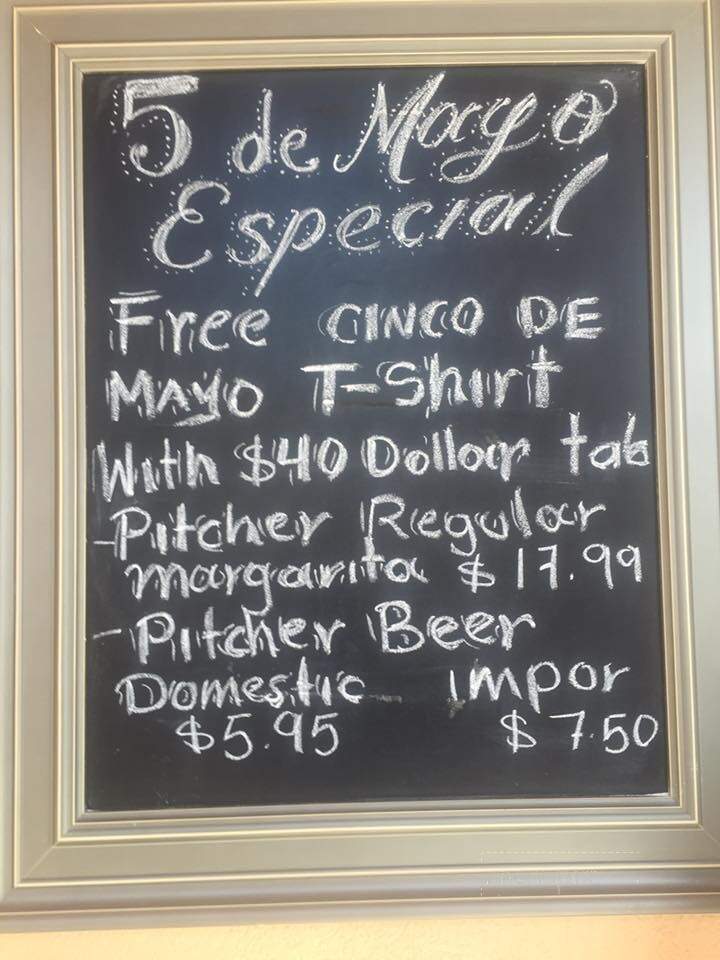 5 de Mayo
Especial
Free CINCO DE
MAYO T-Shirt
With $40 Dollar tab
-Pitcher Regular
margarita $17.99
-Pitcher Beer
Domestic impor
$5.95 $7.50